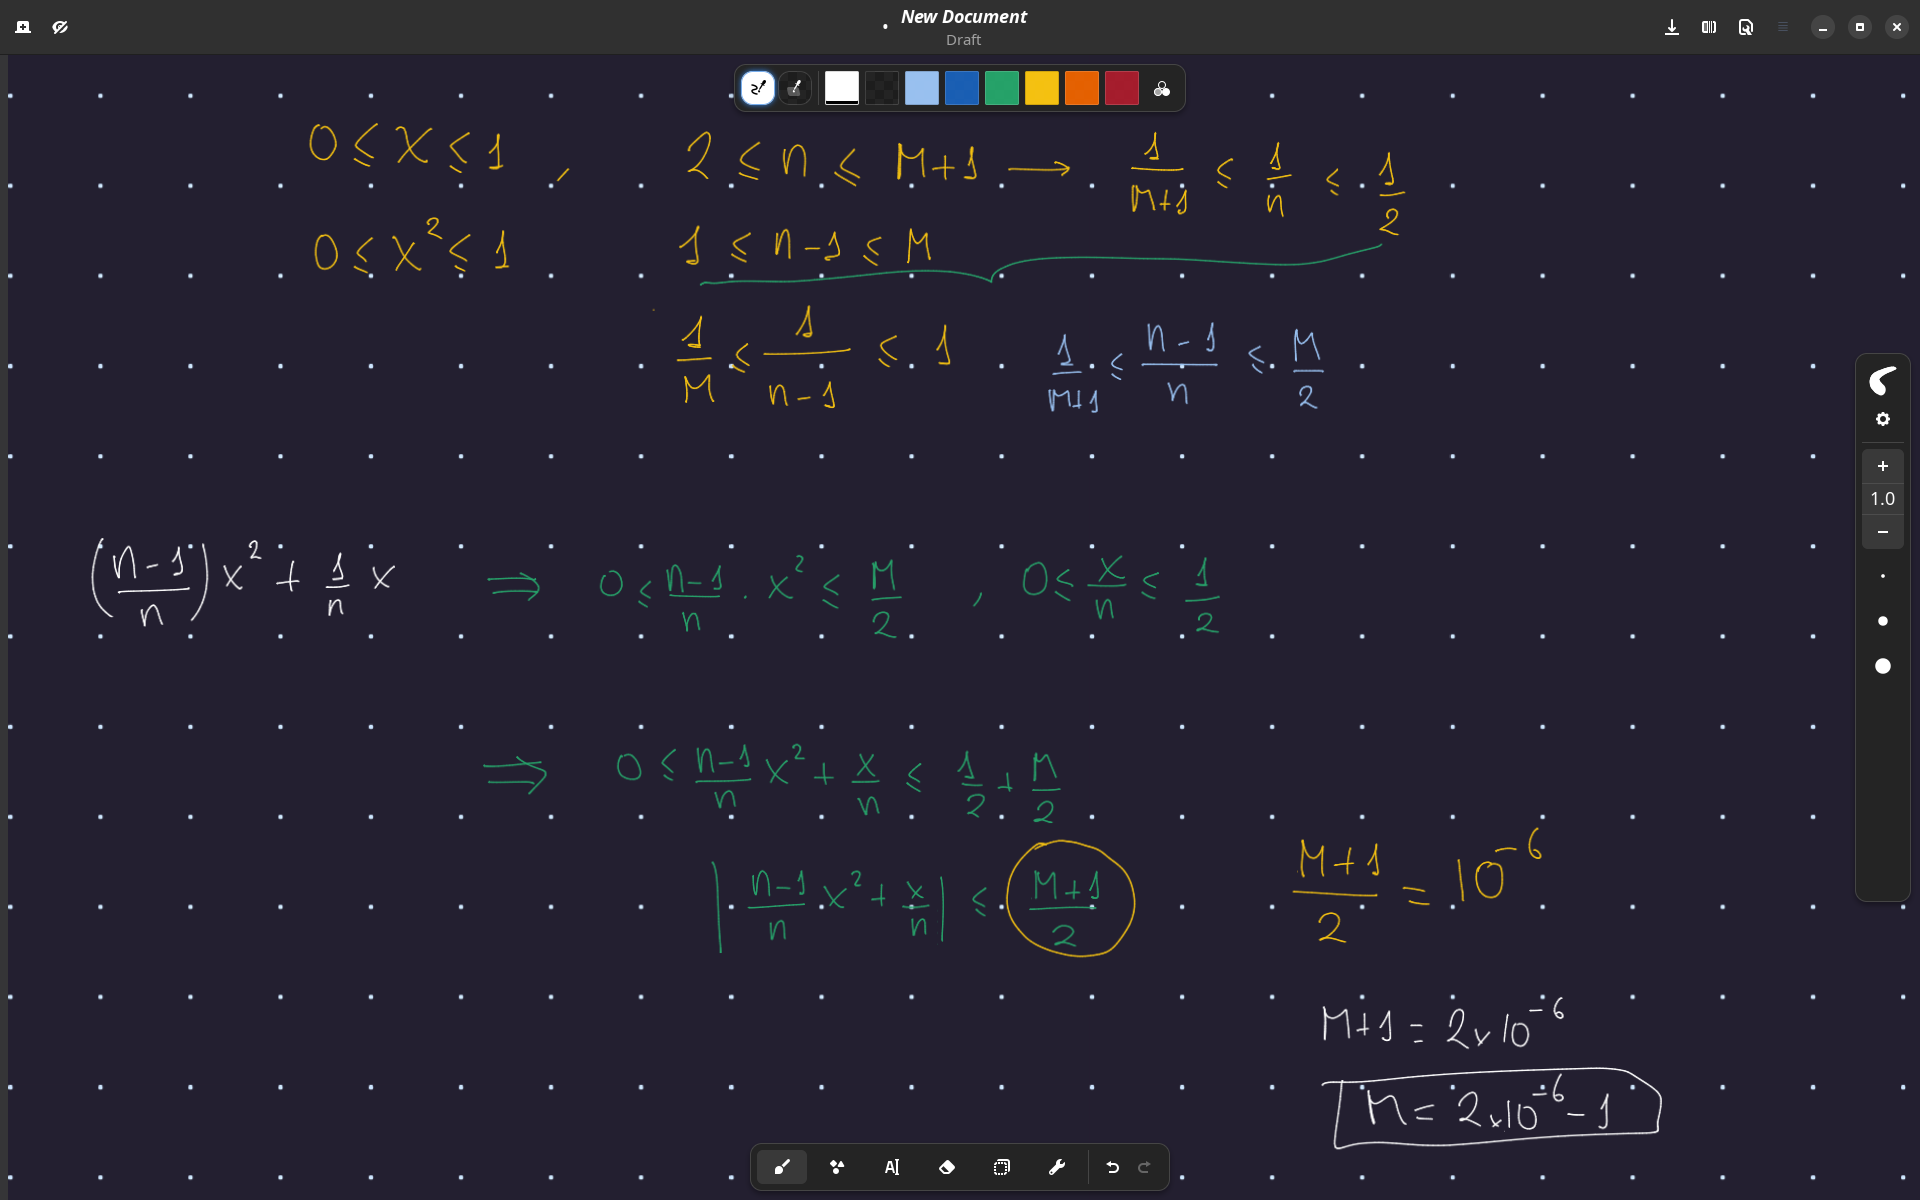 New Document
Draft
0 ≤ x ≤ 1 , 2 ≤ n ≤ M+1 → 1/(M+1) ≤ 1/n ≤ 1/2
0 ≤ x² ≤ 1 1 ≤ n-1 ≤ M
1/M ≤ 1/(n-1) ≤ 1 1/(M+1) ≤ (n-1)/n ≤ M/2
1.0
((n-1)/n) x² + 1/n x ⇒ 0 ≤ (n-1)/n · x² ≤ M/2 , 0 ≤ x/n ≤ 1/2
⇒ 0 ≤ (n-1)/n x² + x/n ≤ 1/2 + M/2
|(n-1)/n x² + x/n| ≤ (M+1)/2 (M+1)/2 = 10⁻⁶
M+1 = 2×10⁻⁶
M = 2×10⁻⁶ - 1